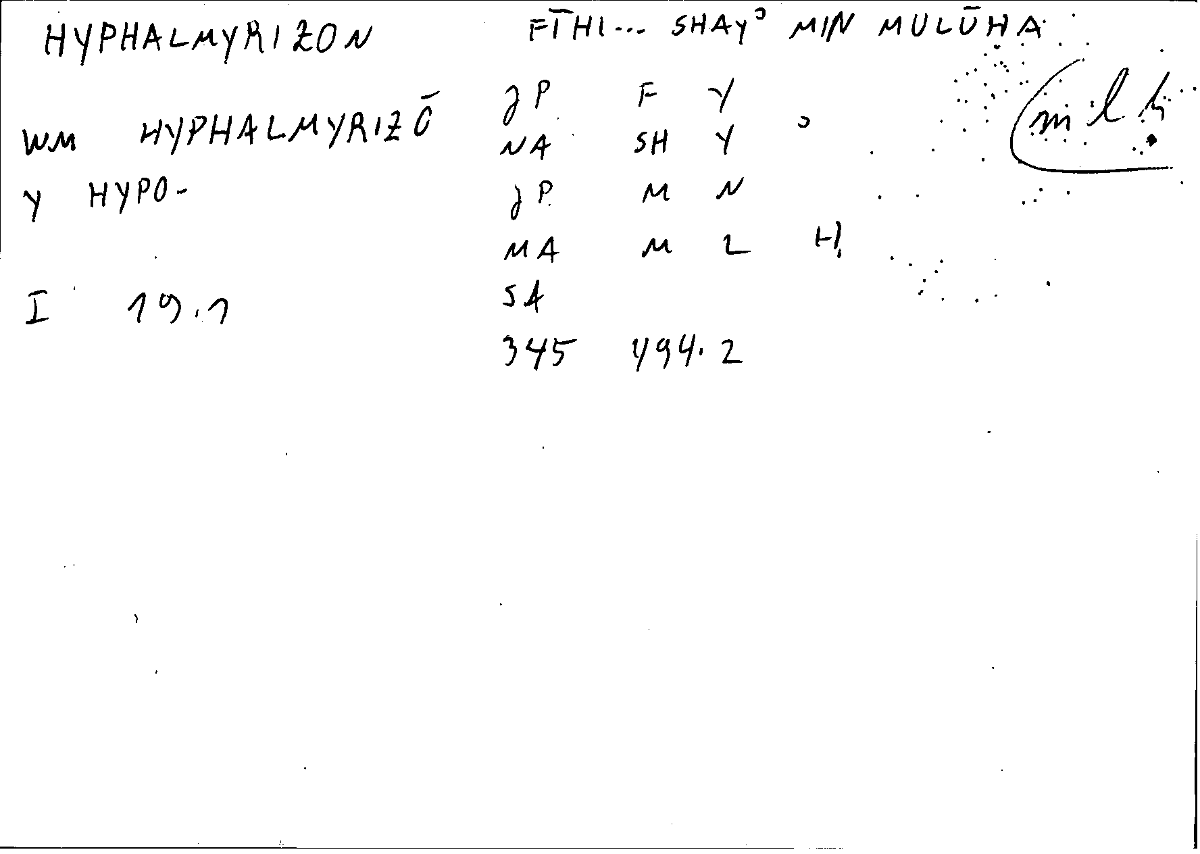 HYPHALMYRIZON
WM HYPHALMYRIZŌ
Y HYPO-
I 19.1
FĪHI... SHAYʾ MIN MULŪḤA
JP F Y
NA SH Y ʾ
JP M N
MA M L Ḥ
SA
345 494.2
milḥ